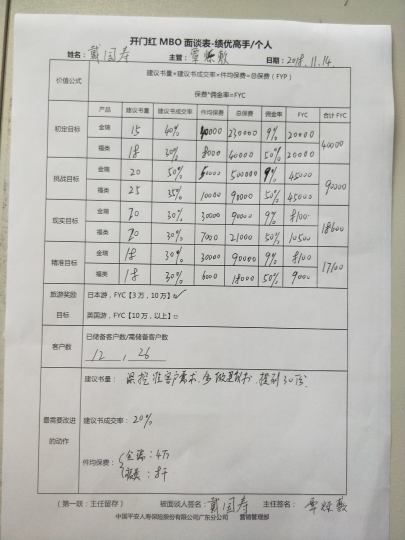 开门红 MBO 面谈表-绩优高手/个人
姓名: 戴国寿 主管: 覃烁敏 日期: 2018.11.14
价值公式 建议书量*建议书成交率*件均保费=总保费(FYP)
保费*佣金率=FYC
产品 建议书量 建议书成交率 件均保费 总保费 佣金率 FYC 合计 FYC
初定目标 金瑞 15 40% 40000 230000 9% 20000 40000
福类 18 30% 8000 40000 50% 20000
挑战目标 金瑞 20 50% 50000 500000 9% 45000 90000
福类 25 35% 10000 90000 50% 45000
现实目标 金瑞 10 30% 30000 90000 9% 8100 18600
福类 10 30% 7000 21000 50% 10500
精准目标 金瑞 18 30% 30000 90000 9% 8100 17100
福类 18 30% 6000 18000 50% 9000
旅游奖励 日本游,FYC【3万,10万】✓
目标 英国游,FYC【10万,以上】
客户数 已储备客户数/需储备客户数
12 , 26
最需要改进的动作 建议书量: 多做建议书
建议书成交率: 20%
件均保费: 金瑞:4万
(第一联:主任留存) 被面谈人签名: 戴国寿 主任签名: 覃烁敏
中国平安人寿保险股份有限公司广东分公司 营销管理部